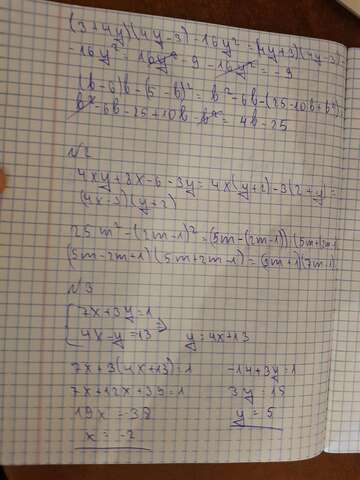 (3+4y)(4y-3)-16y² = (4y+3)(4y-3)-
-16y² = 16y² - 9 - 16y² = -9
(b-6)b-(5-b)² = b²-6b-(25-10b+b²)
b²-6b-25+10b-b² = 4b-25
№2
4xy+8x-6-3y = 4x(y+2)-3(2+y) =
(4x-3)(y+2)
25m²-(2m-1)² = (5m-(2m-1))(5m+2m-1)
(5m-2m+1)(5m+2m-1) = (3m+1)(7m-1)
№3
{7x+3y=1
4x-y=-13 => y=4x+13
7x+3(4x+13)=1 -14+3y=1
7x+12x+39=1 3y=15
19x=-38 y=5
x=-2